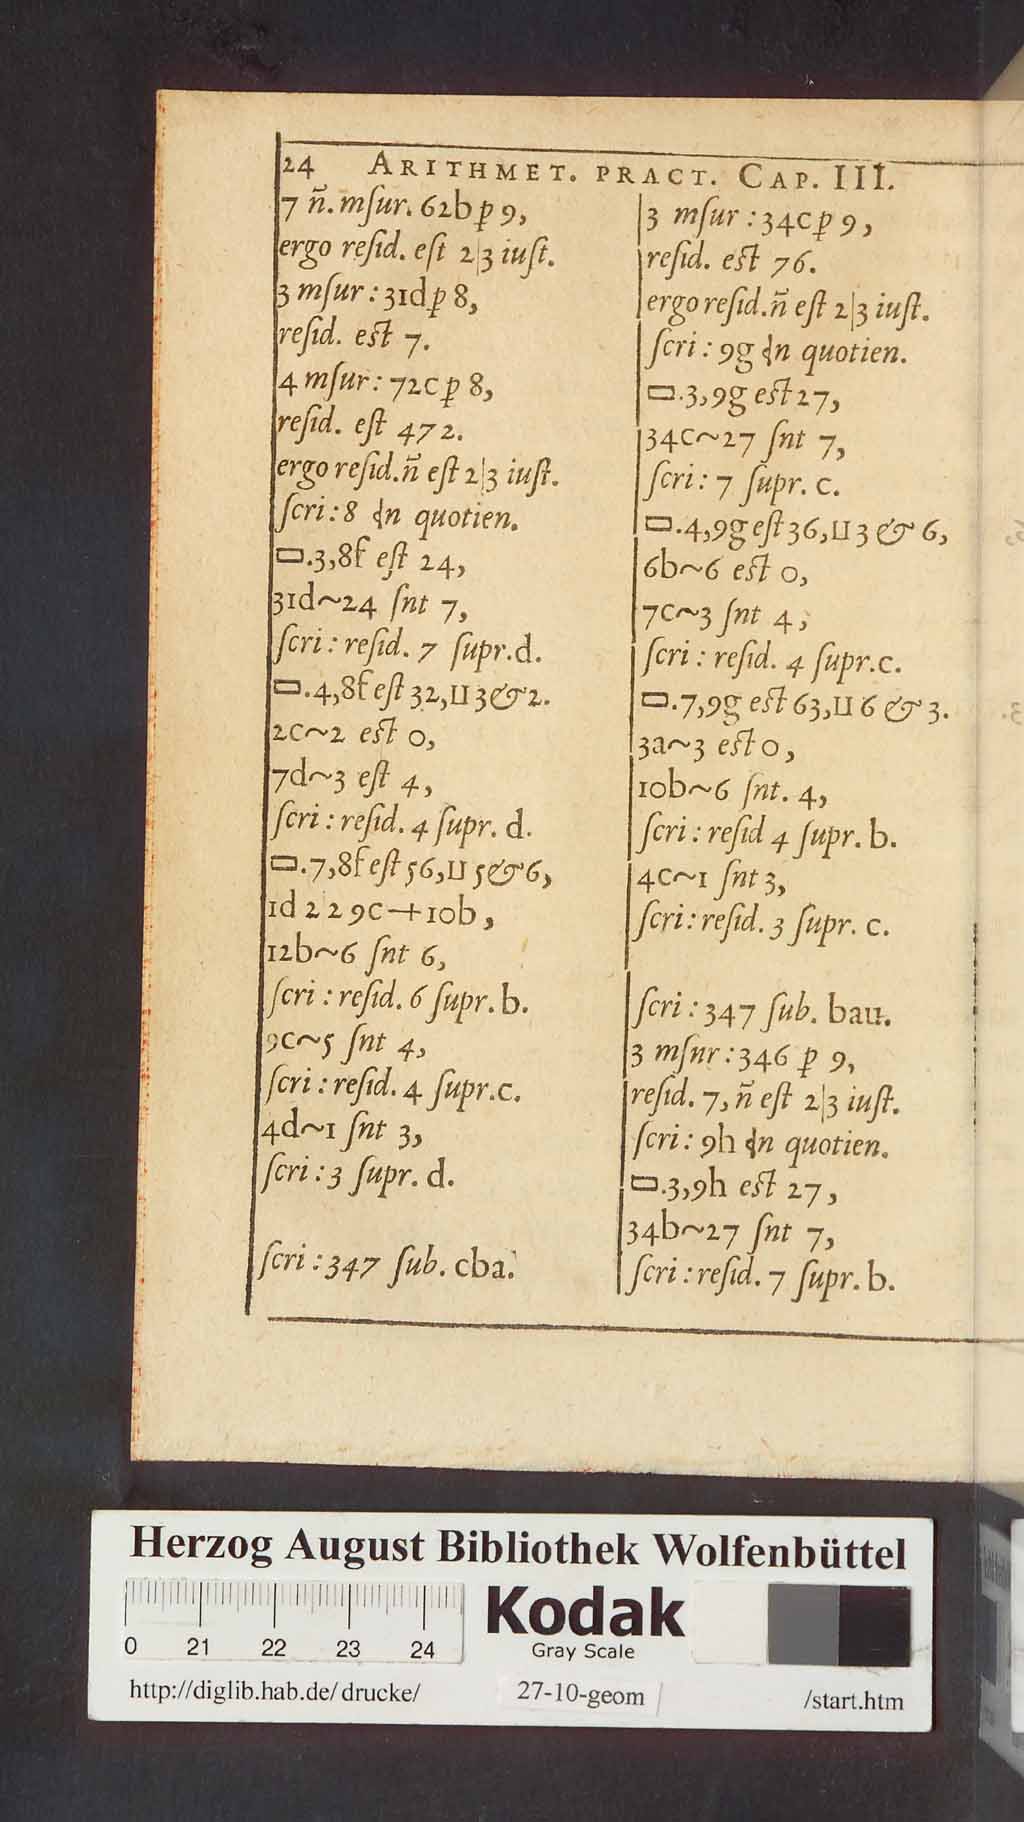 24 ARITHMET. PRACT. CAP. III.
7 ñ. mſur. 62b ꝑ 9,
ergo reſid. eſt 2|3 iuſt.
3 mſur: 31d ꝑ 8,
reſid. eſt 7.
4 mſur: 72c ꝑ 8,
reſid. eſt 472.
ergo reſid. ñ eſt 2|3 iuſt.
ſcri: 8 quotien.
▭.3,8f eſt 24,
31d~24 ſnt 7,
ſcri: reſid. 7 ſupr. d.
▭.4,8f eſt 32, ⊔ 3 & 2.
2c~2 eſt 0,
7d~3 eſt 4,
ſcri: reſid. 4 ſupr. d.
▭.7,8f eſt 56, ⊔ 5 & 6,
1d 2 2 9c + 10b,
12b~6 ſnt 6,
ſcri: reſid. 6 ſupr. b.
9c~5 ſnt 4,
ſcri: reſid. 4 ſupr. c.
4d~1 ſnt 3,
ſcri: 3 ſupr. d.
ſcri: 347 ſub. cba.
3 mſur: 34c ꝑ 9,
reſid. eſt 76.
ergo reſid. ñ eſt 2|3 iuſt.
ſcri: 9g quotien.
▭.3,9g eſt 27,
34c~27 ſnt 7,
ſcri: 7 ſupr. c.
▭.4,9g eſt 36, ⊔ 3 & 6,
6b~6 eſt 0,
7c~3 ſnt 4,
ſcri: reſid. 4 ſupr. c.
▭.7,9g eſt 63, ⊔ 6 & 3.
3a~3 eſt 0,
10b~6 ſnt. 4,
ſcri: reſid 4 ſupr. b.
4c~1 ſnt 3,
ſcri: reſid. 3 ſupr. c.
ſcri: 347 ſub. bau.
3 mſnr: 346 ꝑ 9,
reſid. 7, ñ eſt 2|3 iuſt.
ſcri: 9h quotien.
▭.3,9h eſt 27,
34b~27 ſnt 7,
ſcri: reſid. 7 ſupr. b.
Herzog August Bibliothek Wolfenbüttel
0 21 22 23 24
Kodak
Gray Scale
http://diglib.hab.de/drucke/ 27-10-geom /start.htm